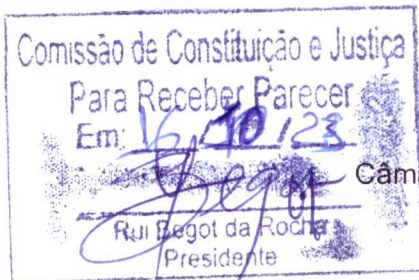 Comissão de Constituição e Justiça
Para Receber Parecer
Em: 16/10/23
Câm
Rui Begot da Rocha
Presidente